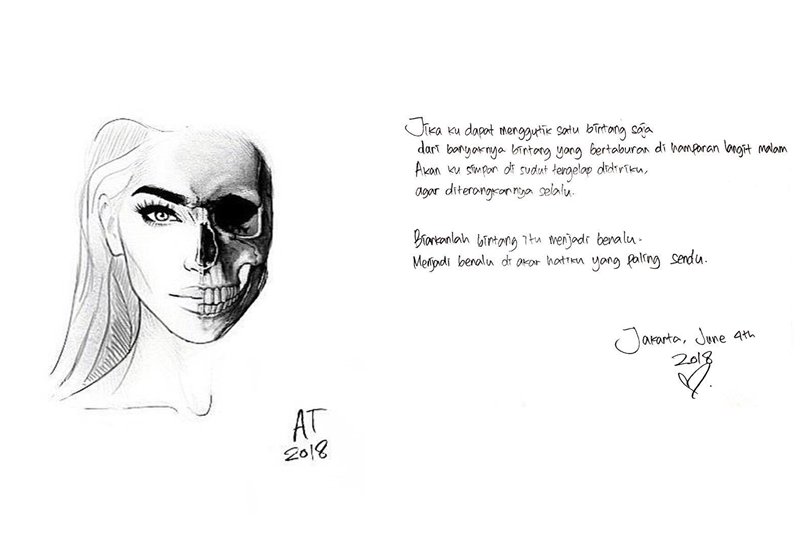 Jika ku dapat menggutik satu bintang saja
dari banyaknya bintang yang bertaburan di hamparan langit malam
Akan ku simpan di sudut tergelap didiriku,
agar diterangkannya selalu.
Biarkanlah bintang itu menjadi benalu.
Menjadi benalu di akar hatiku yang paling sendu.
Jakarta, June 4th
2018
AT
2018